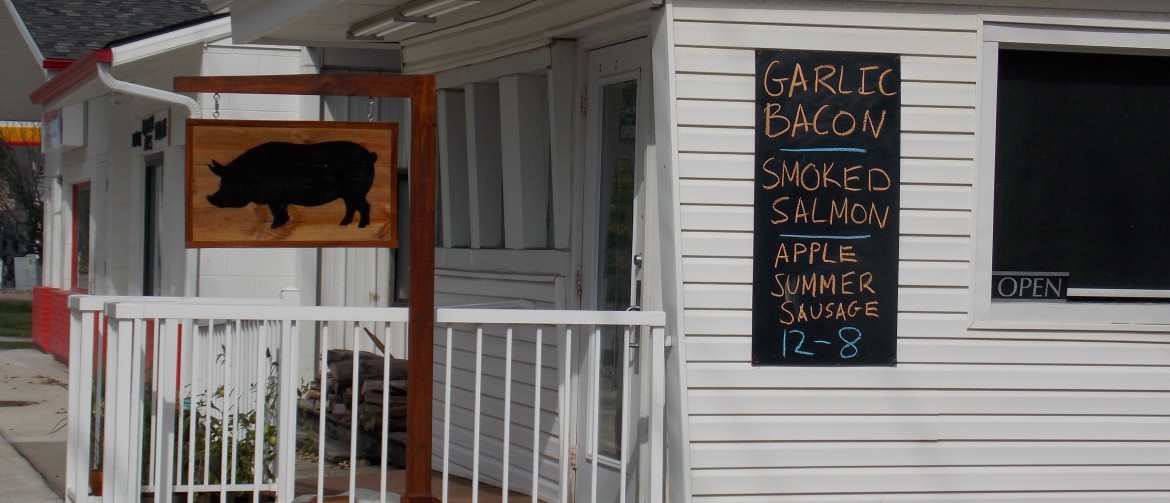 GARLIC
BACON
SMOKED
SALMON
APPLE
SUMMER
SAUSAGE
12-8
OPEN